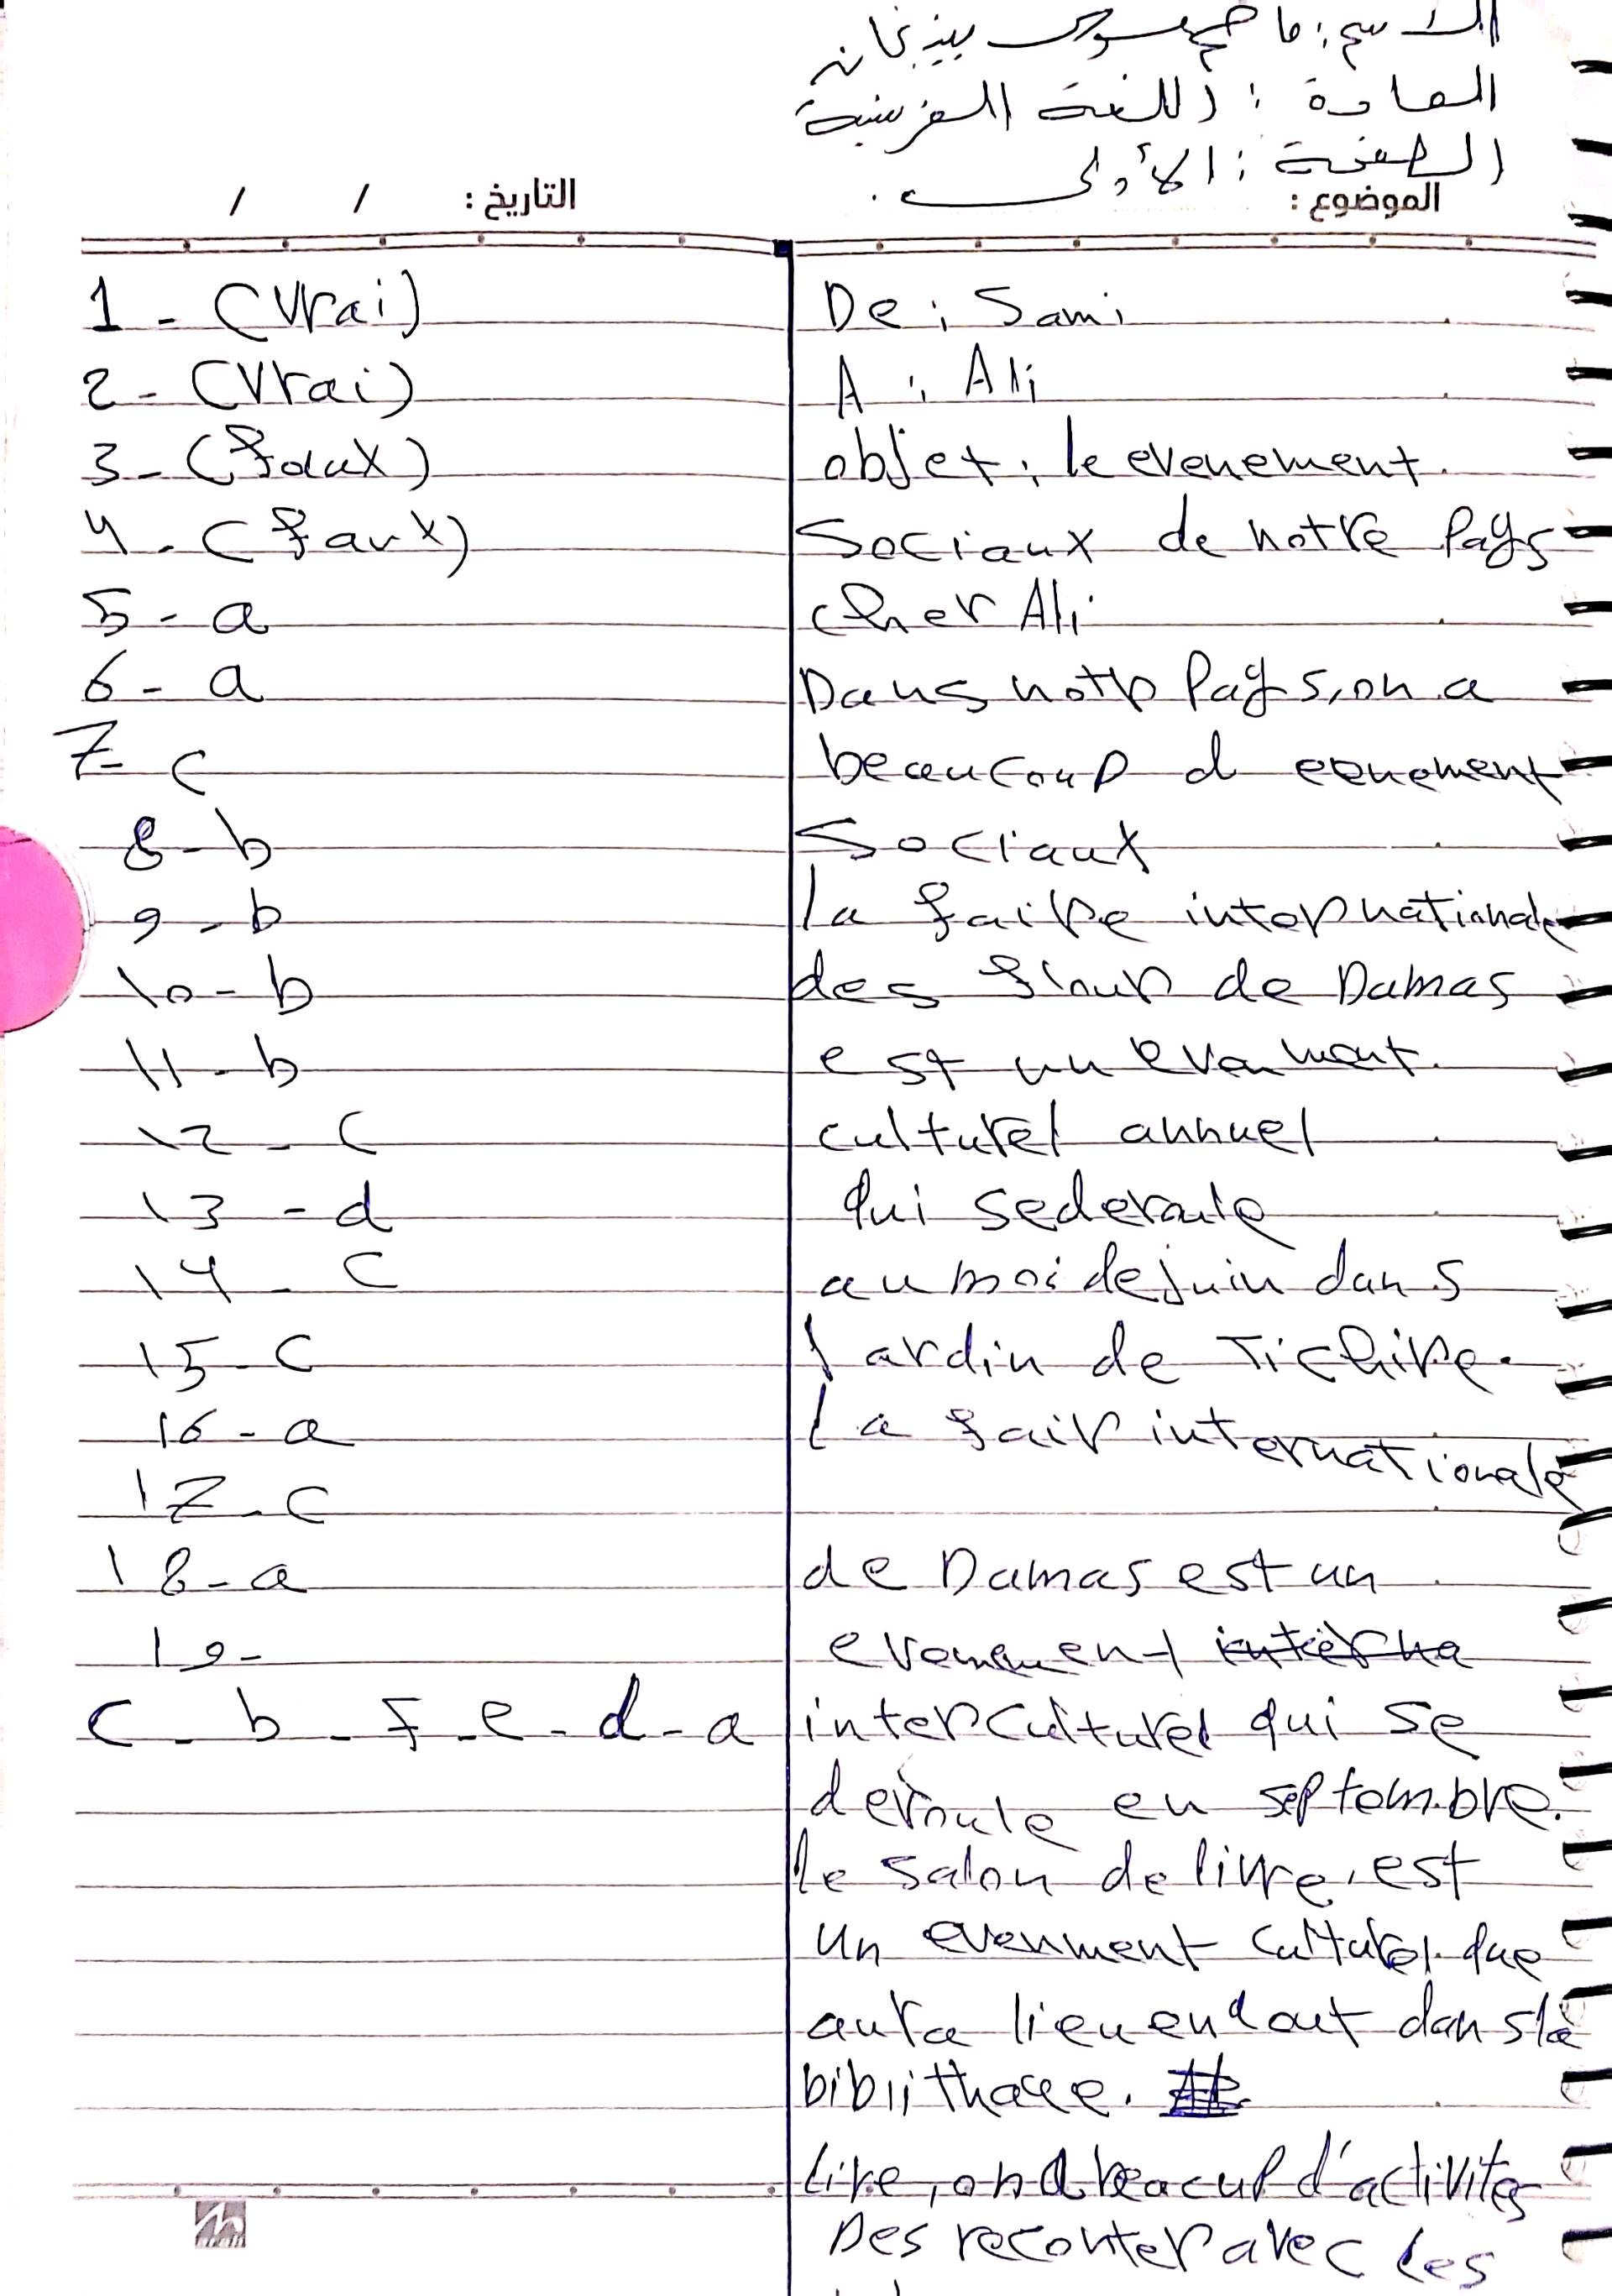 الاسم : ما بيذجان
المادة : اللغة الفرنسية
الصفحة : الأولى .
الموضوع :
التاريخ : / /
1 - (Vrai)
2 - (Vrai)
3 - (faux)
4 - (faux)
5 - a
6 - a
7 - c
8 - b
9 - b
10 - b
11 - b
12 - c
13 - d
14 - c
15 - c
16 - a
17 - c
18 - a
19 -
c - b - f - e - d - a
De : Sami
A : Ali
objet : le evenement
Sociaux de notre Pays
cher Ali
Dans notr Pays, on a
beaucoup d
Sociaux
la faire internationale
des flour de Damas
est un
culturel annuel
qui sederoule
au moi de juin dans
Jardin de Tichire.
La fair internationale
de Damas est un
evenement interna
interculturel qui se
deroule en septembre.
le salon de livre, est
un evenment culturel que
aura lieu en aout dans la
Lire, on a beacup d'activites
Des reconter avec les